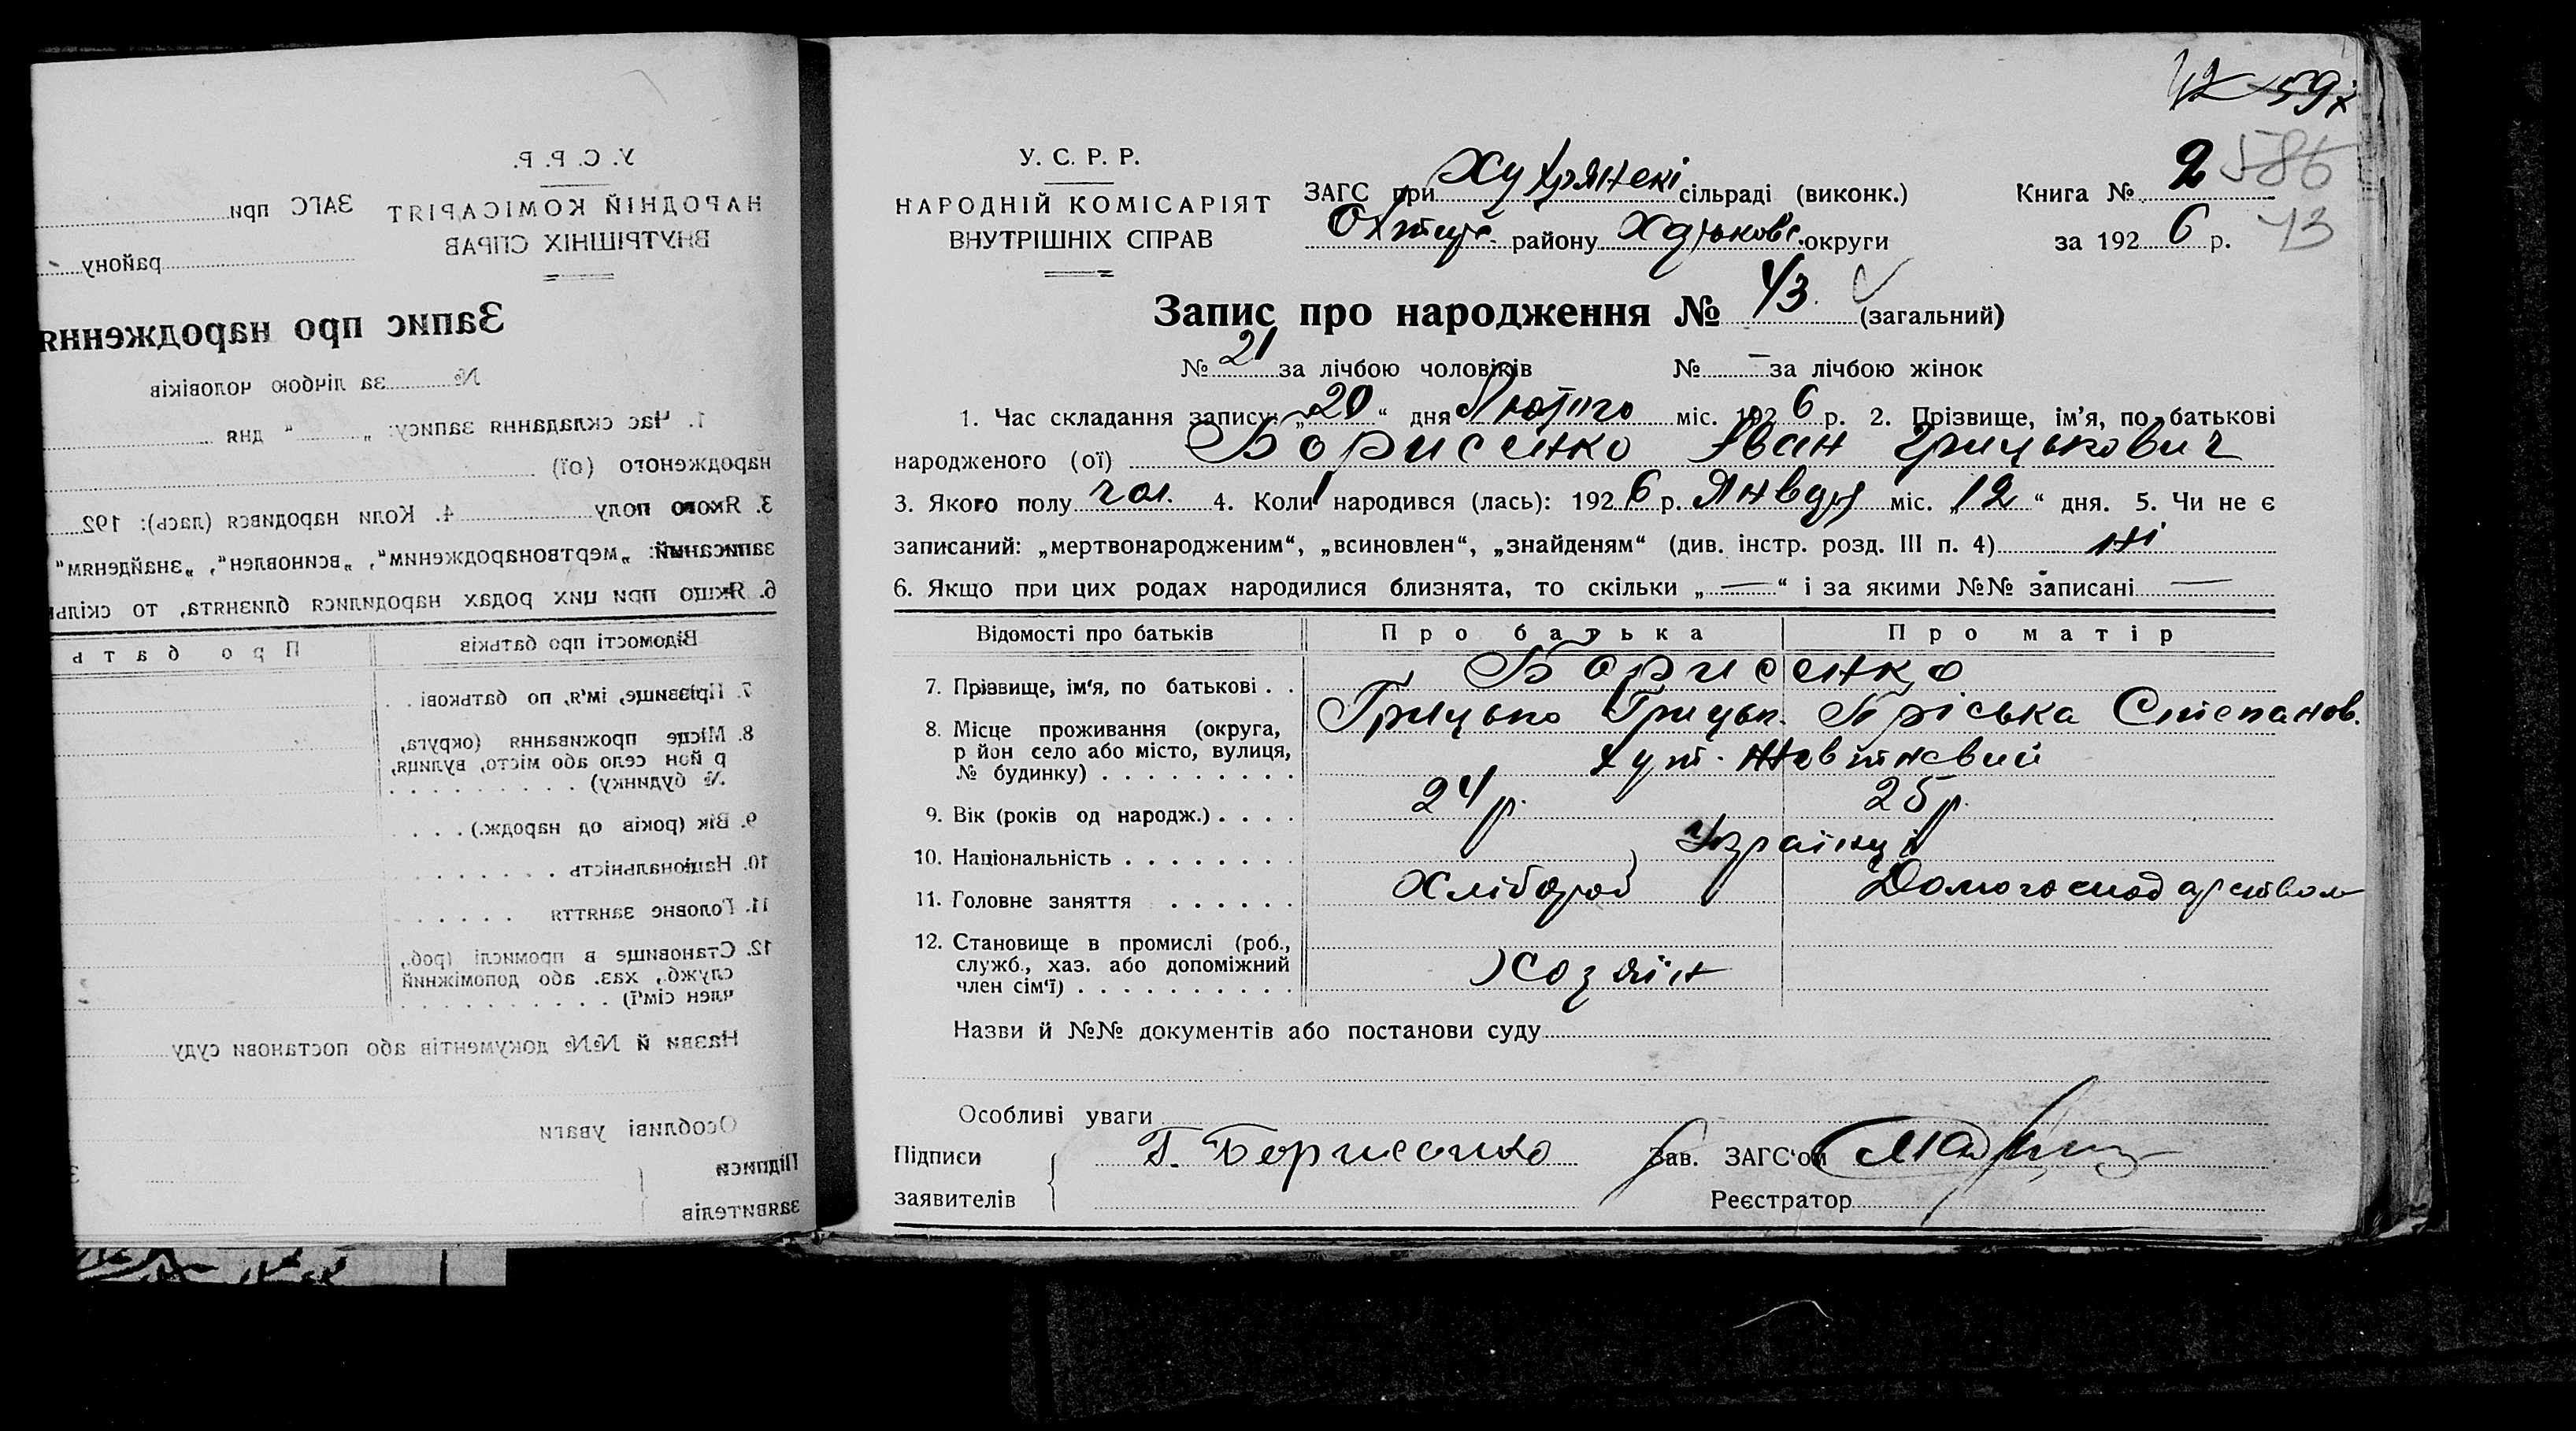 У. С. Р. Р.
НАРОДНІЙ КОМІСАРІЯТ
ВНУТРІШНІХ СПРАВ
ЗАГС при
района
Запис про народження
№ за лічбою чоловіків
1. Час складання запису: „ “ дня
народженого (ої)
3. Якого полу 4. Коли народився (лась): 192
записаний: „мертвонародженим“, „всиновлен“, „знайденям“
6. Якщо при цих родах народилися близнята, то скільк
Відомості про батьків Про бать
7. Прізвище, ім'я, по батькові . .
8. Місце проживання (округа,
р йон село або місто, вулиця,
№ будинку) . . . . . . . . .
9. Вік (років од народж.) . . . .
10. Національність . . . . . . . .
11. Головне заняття . . . . . .
12. Становище в промислі (роб.,
служб., хаз. або допоміжний
член сім'ї) . . . . . . . . . .
Назви й №№ документів або постанови суду
Особливі уваги
Підписи
заявителів
2 586
У. С. Р. Р.
НАРОДНІЙ КОМІСАРІЯТ
ВНУТРІШНІХ СПРАВ
ЗАГС при сільраді (виконк.) Книга №
Охтир. району Харьковс. округи за 1926 р. 43
Запис про народження № 43. (загальний)
№ 21 за лічбою чоловіків № – за лічбою жінок
1. Час складання запису: „20“ дня Лютого міс. 1926 р. 2. Прізвище, ім’я, по батькові
народженого (ої) Борисенко Іван Грицькович
3. Якого полу чол. 4. Коли народився (лась): 1926 р. Января міс. „12“ дня. 5. Чи не є
записаний: „мертвонародженим“, „всиновлен“, „знайденям“ (див. інстр. розд. III п. 4) ні
6. Якщо при цих родах народилися близнята, то скільки „—“ і за якими №№ записані —
Відомості про батьків Про батька Про матір
7. Прізвище, ім‘я, по батькові . . Борисенко
Грицько Грицьк. Пріська Степанов.
8. Місце проживання (округа,
р йон село або місто, вулиця,
№ будинку) . . . . . . . . . хут.
9. Вік (років од народж.) . . . . 24 р. 25 р.
10. Національність . . . . . . . . Українці
11. Головне заняття . . . . . . Хлібороб Домогосподарством
12. Становище в промислі (роб.,
служб., хаз. або допоміжний
член сім‘ї) . . . . . . . . . . Хозяїн
Назви й №№ документів або постанови суду
Особливі уваги
Підписи Г. Борисенко Зав. ЗАГС‘ом
заявителів Реєстратор